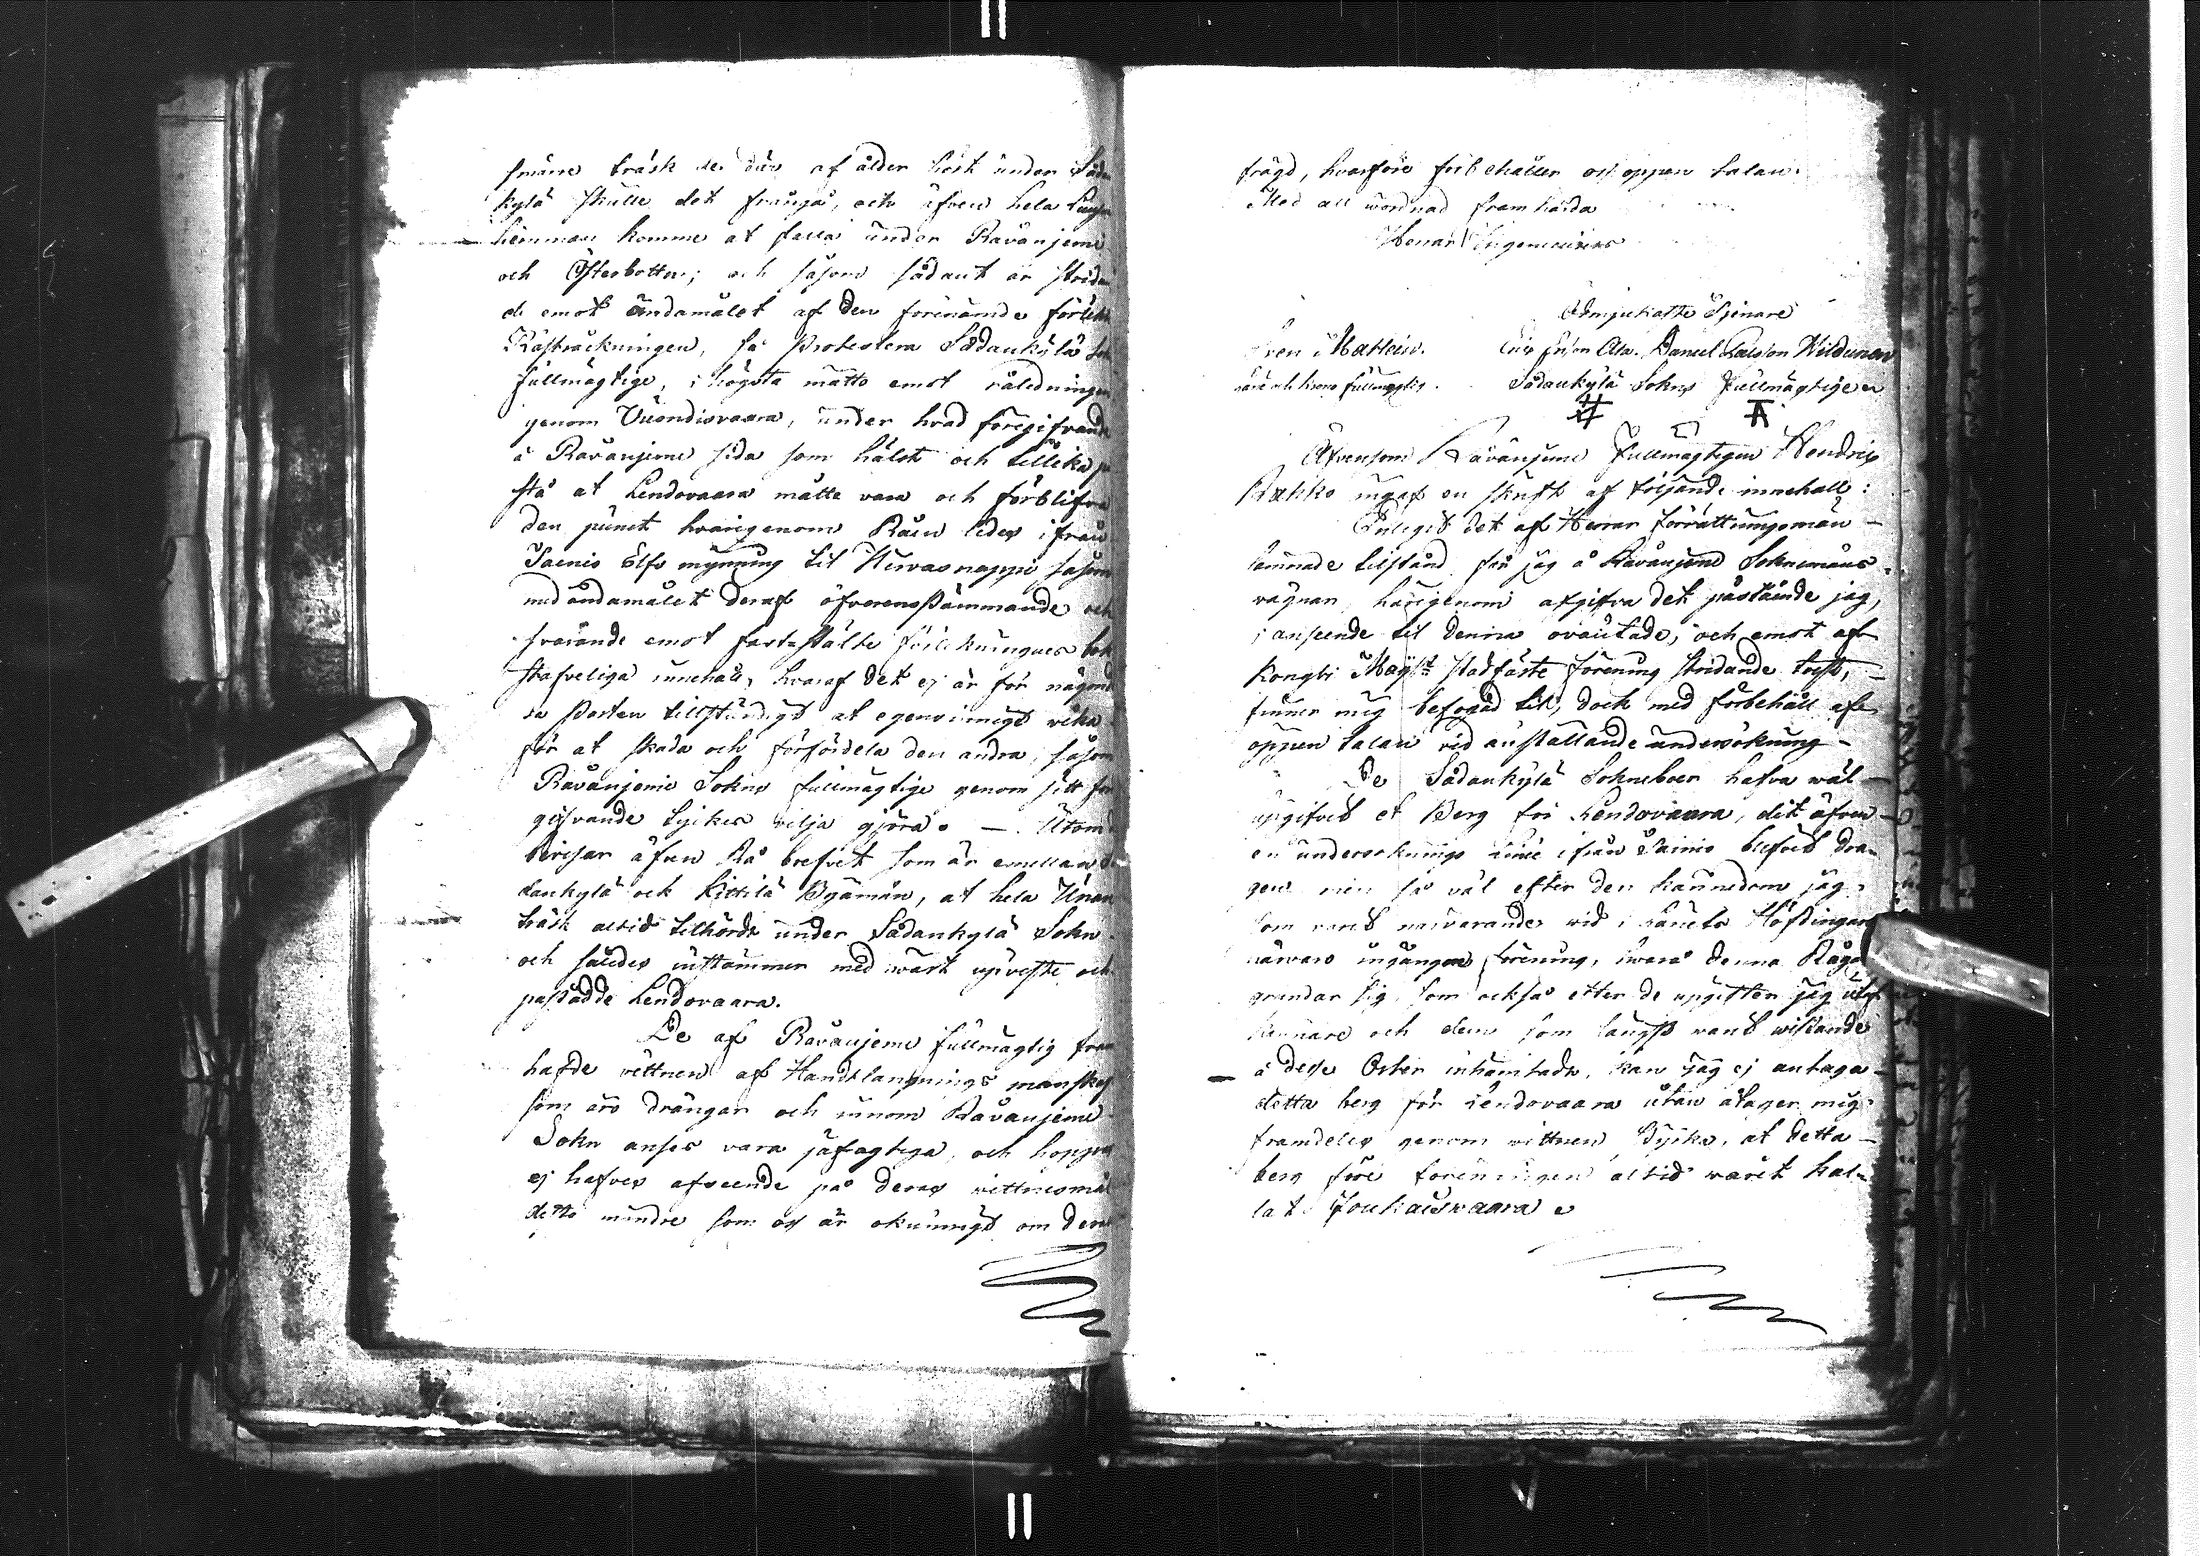 smärre träsk der där af ålder lÿdt under Såda
kylä skulle det frångå, och äfven hela
hemman komme at falla under Råvanjemi
och Österbotten; och såsom sådant är stridan
de emot ändamålet af den förenämde förlik
Råsträckningen, så protestera Sådankylä
fullmägtige, i högsta måtto emot råledningen
genom Vuondisvaara, under hvad föregifvande
å Råvanjemi sida som hälst och tillika på
stå at Lendovaara måtte vara och förblifva
den punct hvarigenom Råen ledes ifrån
Jaenis Elfs mynning til Hirvasnappi såsom
med ändamålet deraf öfverensstämmande och
svarande emot fastställte förlikningens bok
stafveliga innehåll, hvaraf det ej är för någond
ra parten tillständigt at egensinnigt vika
för at skada och förfördela den andra, såsom
Råvanjemi Sokns fullmägtige genom sitt fö
gifvande tyckes vilja gjöra. — Utom
bevisar äfven Rå brefvet som är emellan
dankylä och Kittilä Byamän, at hela Unan
träsk altid tilhördt under Sådankylä Sokn
och således instämmer med wårt upviste och
påstådde Lendovaara.
De af Råvanjemi fullmägtig fram
hafde vittnen af Handtlangnings manskap
som äro drängar och innom Råvanjemi
Sokn anses vara jäfagtiga, och hoppas
ej hafves afseende på deras vittnesmål
detto mindre som oss är okunnigt om dera
frägd, hvarföre förbehåller oss öppen talan.
Med all wördnad framhärda
Herrar Ingenieurers
Ödmjukaste Tjenare
Daniel Larsson Wildunen
Sådankylä Sokns Fullmägtige
Äfvensom Råvanjemi Fullmägtigen Hendric
Pukko ingaf en skrift af följande innehåll:
Enligit det af Herrar Förrättningsmän
lämnade tilstånd får jag å Råvanjemi Soknemäns
vägnar härigenom afgifva det påstående jag,
i anseende til denna oväntade, och emot af
Kongli Maÿst stadfäste förening stridande twist,
finner mig befogad til, dock med förbehåll af
öppen talan vid anställande undersökning
De Sådankylä Sokneboer hafva wäl
upgifvit et Berg för Lendovaara, dit äfven
en undersöknings linie ifrån Jainis blifvit dra-
gen men så väl efter den kännedom jag
som varit närvarande wid i Höfdingars
närvaro ingången förening, hwarå denna Rågå
grundar sig, som också efter de upgifter jag utaf
kännare och dem som längst warit wistande
å desse Orter inhämtadt, kan jag ej antaga
detta berg för Lendovaara utan åtager mig
framdeles genom vittnen styrka, at detta
berg före föreningen altid warit kal-
lat Joukaisvaara